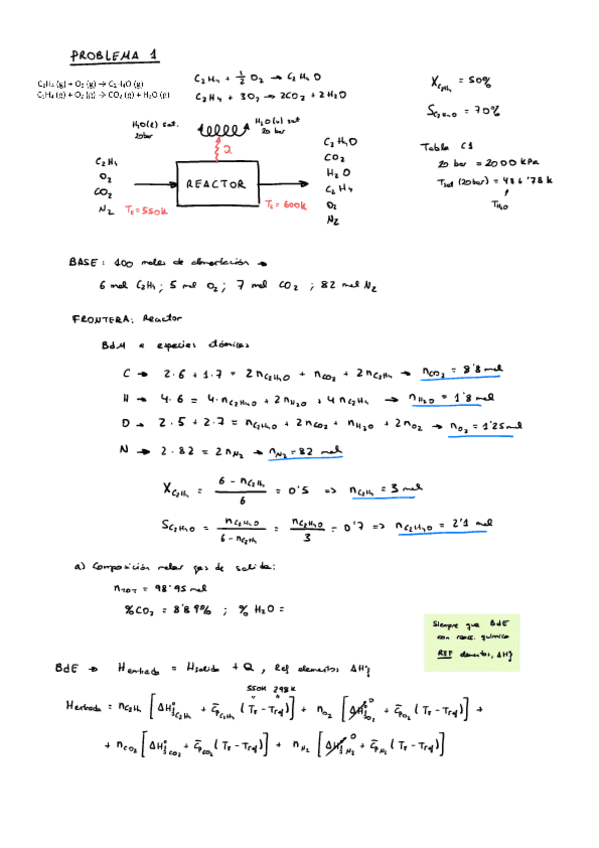 PROBLEMA 1
C2H4 (g) + O2 (g) → C2H4O (g)
C2H4 (g) + O2 (g) → CO2 (g) + H2O (g)
C2H4 + 1/2 O2 → C2H4O
C2H4 + 3O2 → 2CO2 + 2H2O
XC2H4 = 50%
SC2H4O = 70%
H2O(l) sat.
20bar
H2O(v) sat
20 bar
Tabla C1
20 bar = 2000 kPa
Tsat (20bar) = 486'78 k
TH2O
C2H4
O2
CO2
N2
TE=550k
REACTOR
TS=600k
C2H4O
CO2
H2O
C2H4
O2
N2
BASE: 100 moles de alimentación →
6 mol C2H4; 5 mol O2; 7 mol CO2; 82 mol N2
FRONTERA: Reactor
BdM a especies atómicas
C → 2·6 + 1·7 = 2nC2H4O + nCO2 + 2nC2H4 → nCO2 = 8'8 mol
H → 4·6 = 4·nC2H4O + 2nH2O + 4nC2H4 → nH2O = 1'8 mol
O → 2·5 + 2·7 = nC2H4O + 2nCO2 + nH2O + 2nO2 → nO2 = 1'25 mol
N → 2·82 = 2nN2 → nN2 = 82 mol
XC2H4 = (6 - nC2H4)/6 = 0'5 => nC2H4 = 3 mol
SC2H4O = nC2H4O/(6-nC2H4) = nC2H4O/3 = 0'7 => nC2H4O = 2'1 mol
a) Composición molar gas de salida:
nTOT = 98'95 mol
%CO2 = 8'89%; %H2O =
Siempre que BdE
con reacc. química
REF elementos, ΔHºf
BdE → Hentrada = Hsalida + Q, Ref elementos ΔHºf
550k 298k
Hentrada = nC2H4 [ΔHºfC2H4 + c̄pC2H4 (TE - Tref)] + nO2 [ΔHºfO2 0 + c̄pO2 (TE - Tref)] +
+ nCO2 [ΔHºfCO2 + c̄pCO2 (TE - Tref)] + nN2 [ΔHºfN2 0 + c̄pN2 (TE - Tref)]